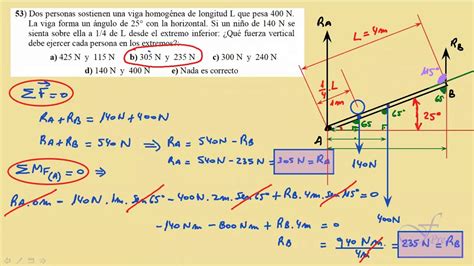 53) Dos personas sostienen una viga homogénea de longitud L que pesa 400 N.
La viga forma un ángulo de 25° con la horizontal. Si un niño de 140 N se
sienta sobre ella a 1/4 de L desde el extremo inferior: ¿Qué fuerza vertical
debe ejercer cada persona en los extremos?:
a) 425 N y 115 N b) 305 N y 235 N c) 300 N y 240 N
d) 140 N y 400 N e) Nada es correcto
ΣF = 0
RA + RB = 140N + 400N
RA + RB = 540N ⇒ RA = 540N - RB
RA = 540N - 235N = 305N = RA
ΣMF(A) = 0 ⇒
RA.0m - 140N.1m.sen65° - 400N.2m.sen65° + RB.4m.sen115° = 0
-140Nm - 800Nm + RB.4m = 0
RB = 940Nm / 4m = 235N = RB
RA
RB
L = 4m
1/4 L
1m
115°
B
65
65
65
25°
A
140N
400N